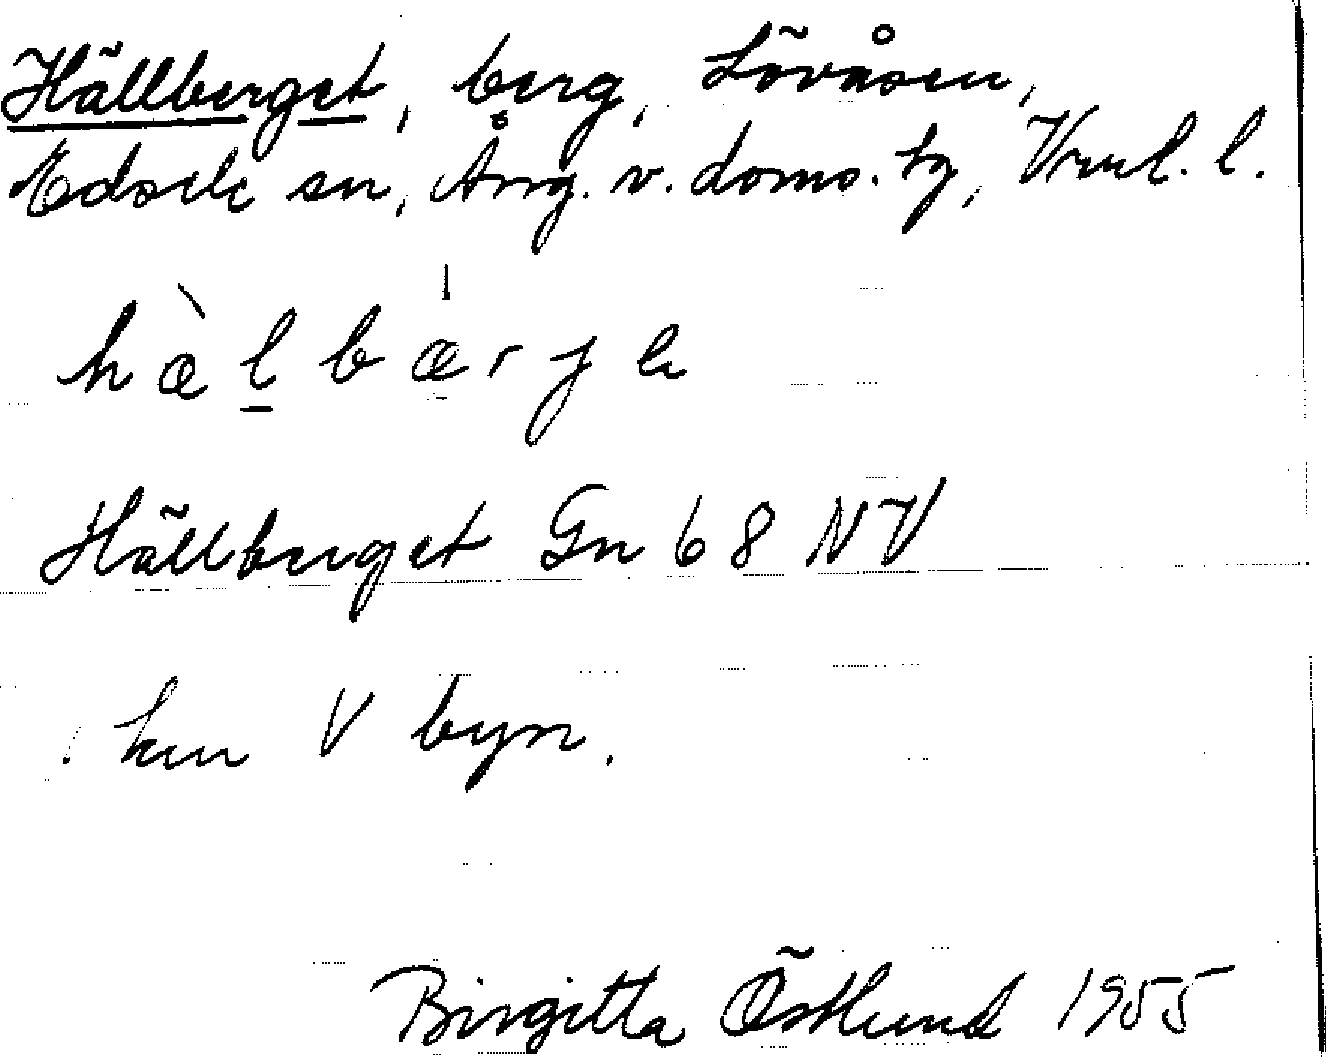 Hällberget, berg, Lövåsen,
Edsele sn, Ång. v. doms. tg, Vnl. l.
hæ̀l̲bæ̍rje
Hällberget Gn 68 NV
km V byn.
Birgitta Östlund 1955